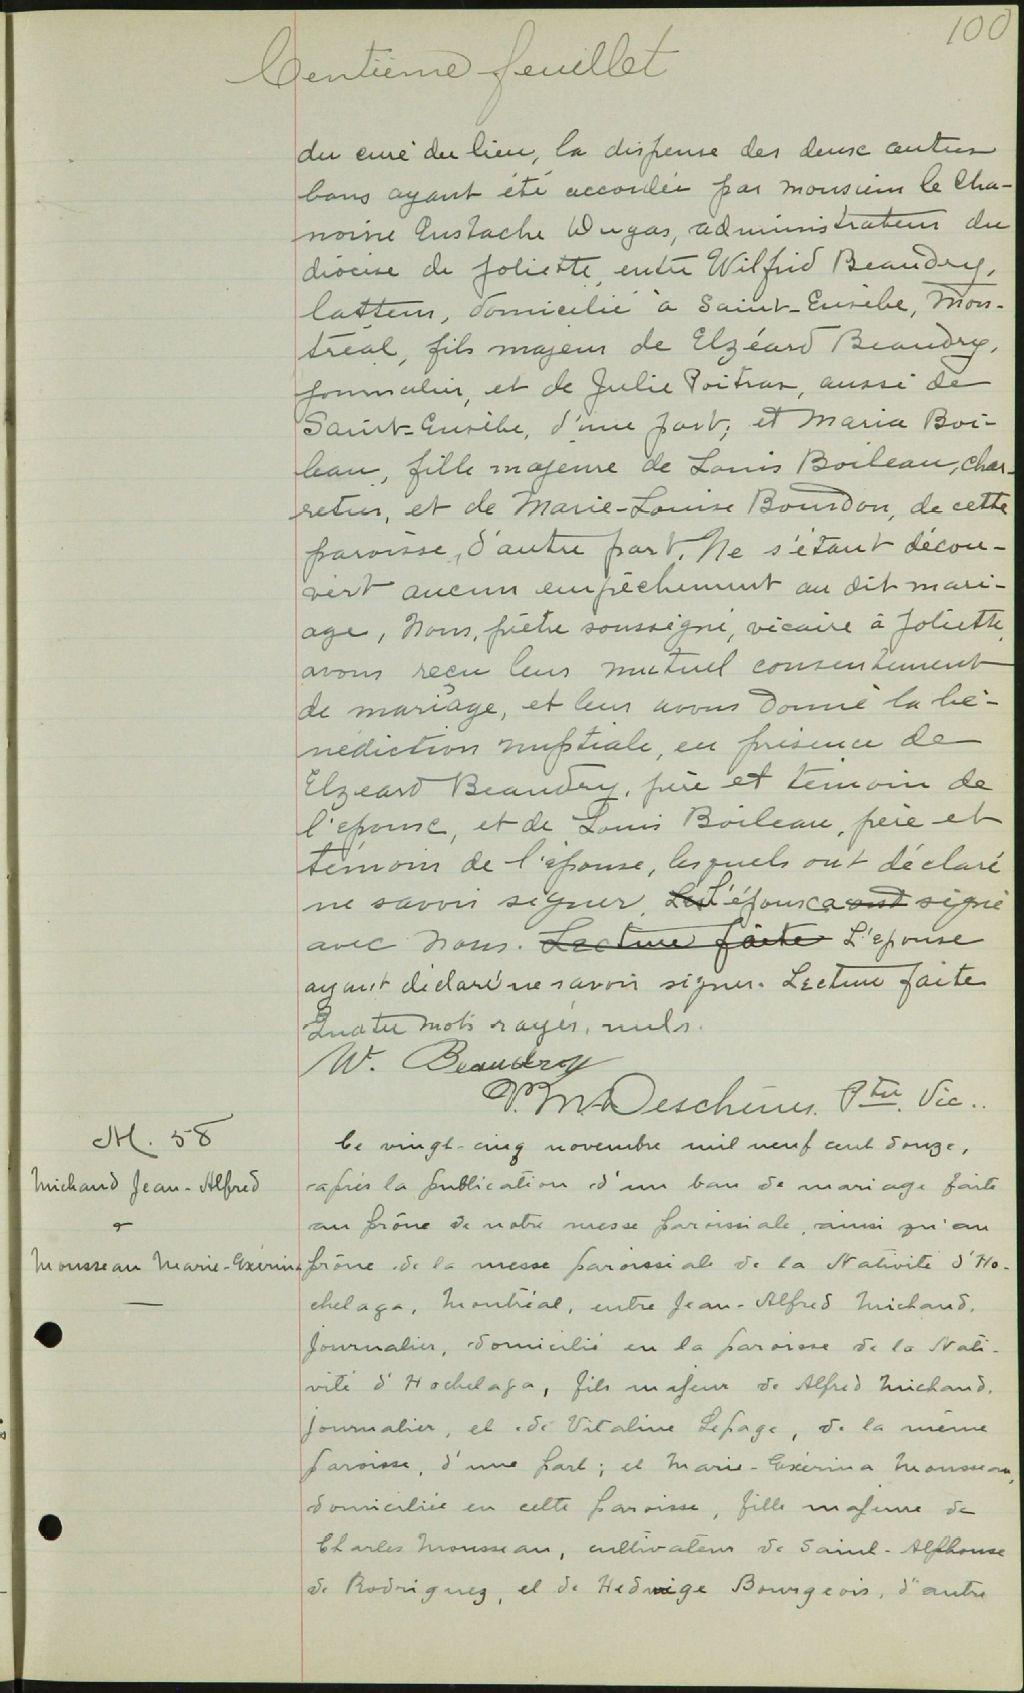 100
Centième feuillet
du curé du lieu, la dispense des deux autres
bans ayant été accordée par monsieur le Cha-
noine Eustache Dugas, administrateur du
diocèse de Joliette, entre Wilfrid Beaudry,
latteur, domicilié à Saint-Eusèbe, Mon-
tréal, fils majeur de Elzéard Beaudry,
journalier, et de Julie Poitras, aussi de
Saint-Eusèbe, d'une part; et Maria Boi-
leau, fille majeure de Louis Boileau, char-
retier, et de Marie-Louise Bourdon, de cette
paroisse, d'autre part. Ne s'étant décou-
vert aucun empêchement au dit mari-
age, Nous, prêtre soussigné, vicaire à Joliette,
avons reçu leur mutuel consentement
de mariage, et leur avons donné la bé-
nédiction nuptiale, en présence de
Elzeard Beaudry, père et témoin de
l'epoux, et de Louis Boileau, père et
témoin de l'épouse, lesquels ont déclaré
ne savoir signer. Les L'époux a ont signé
avec Nous. Lecture faite L'epouse
ayant déclaré ne savoir signer. Lecture faite
Quatre mots rayés, nuls.
W. Beaudry
P. M. Deschênes. Ptre. Vic..
M. 58
Michaud Jean-Alfred
&
Mousseau Marie-Exérina
Le vingt-cinq novembre mil neuf cent douze,
après la publication d'un ban de mariage faite
au prône de notre messe paroissiale, ainsi qu'au
prône de la messe paroissiale de la Nativité d'Ho-
chelaga, Montréal, entre Jean-Alfred Michaud,
journalier, domicilié en la paroisse de la Nati-
vité d'Hochelaga, fils majeur de Alfred Michaud,
journalier, et de Vitaline Lepage, de la même
paroisse, d'une part; et Marie-Exérina Mousseau,
domiciliée en cette paroisse, fille majeure de
Charles Mousseau, cultivateur de Saint-Alphonse
de Rodriguez, et de Hedwige Bourgeois, d'autre